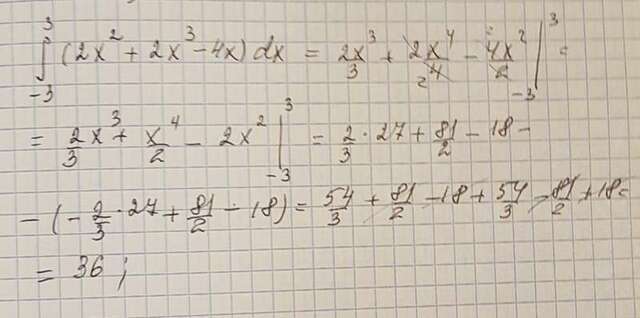 ∫₋₃³ (2x² + 2x³ - 4x) dx = 2x³/3 + 2x⁴/4 - 4x²/2 |₋₃³ =
= 2/3 x³ + x⁴/2 - 2x² |₋₃³ = 2/3 · 27 + 81/2 - 18 -
- (- 2/3 · 27 + 81/2 - 18) = 54/3 + 81/2 - 18 + 54/3 - 81/2 + 18 =
= 36 ;